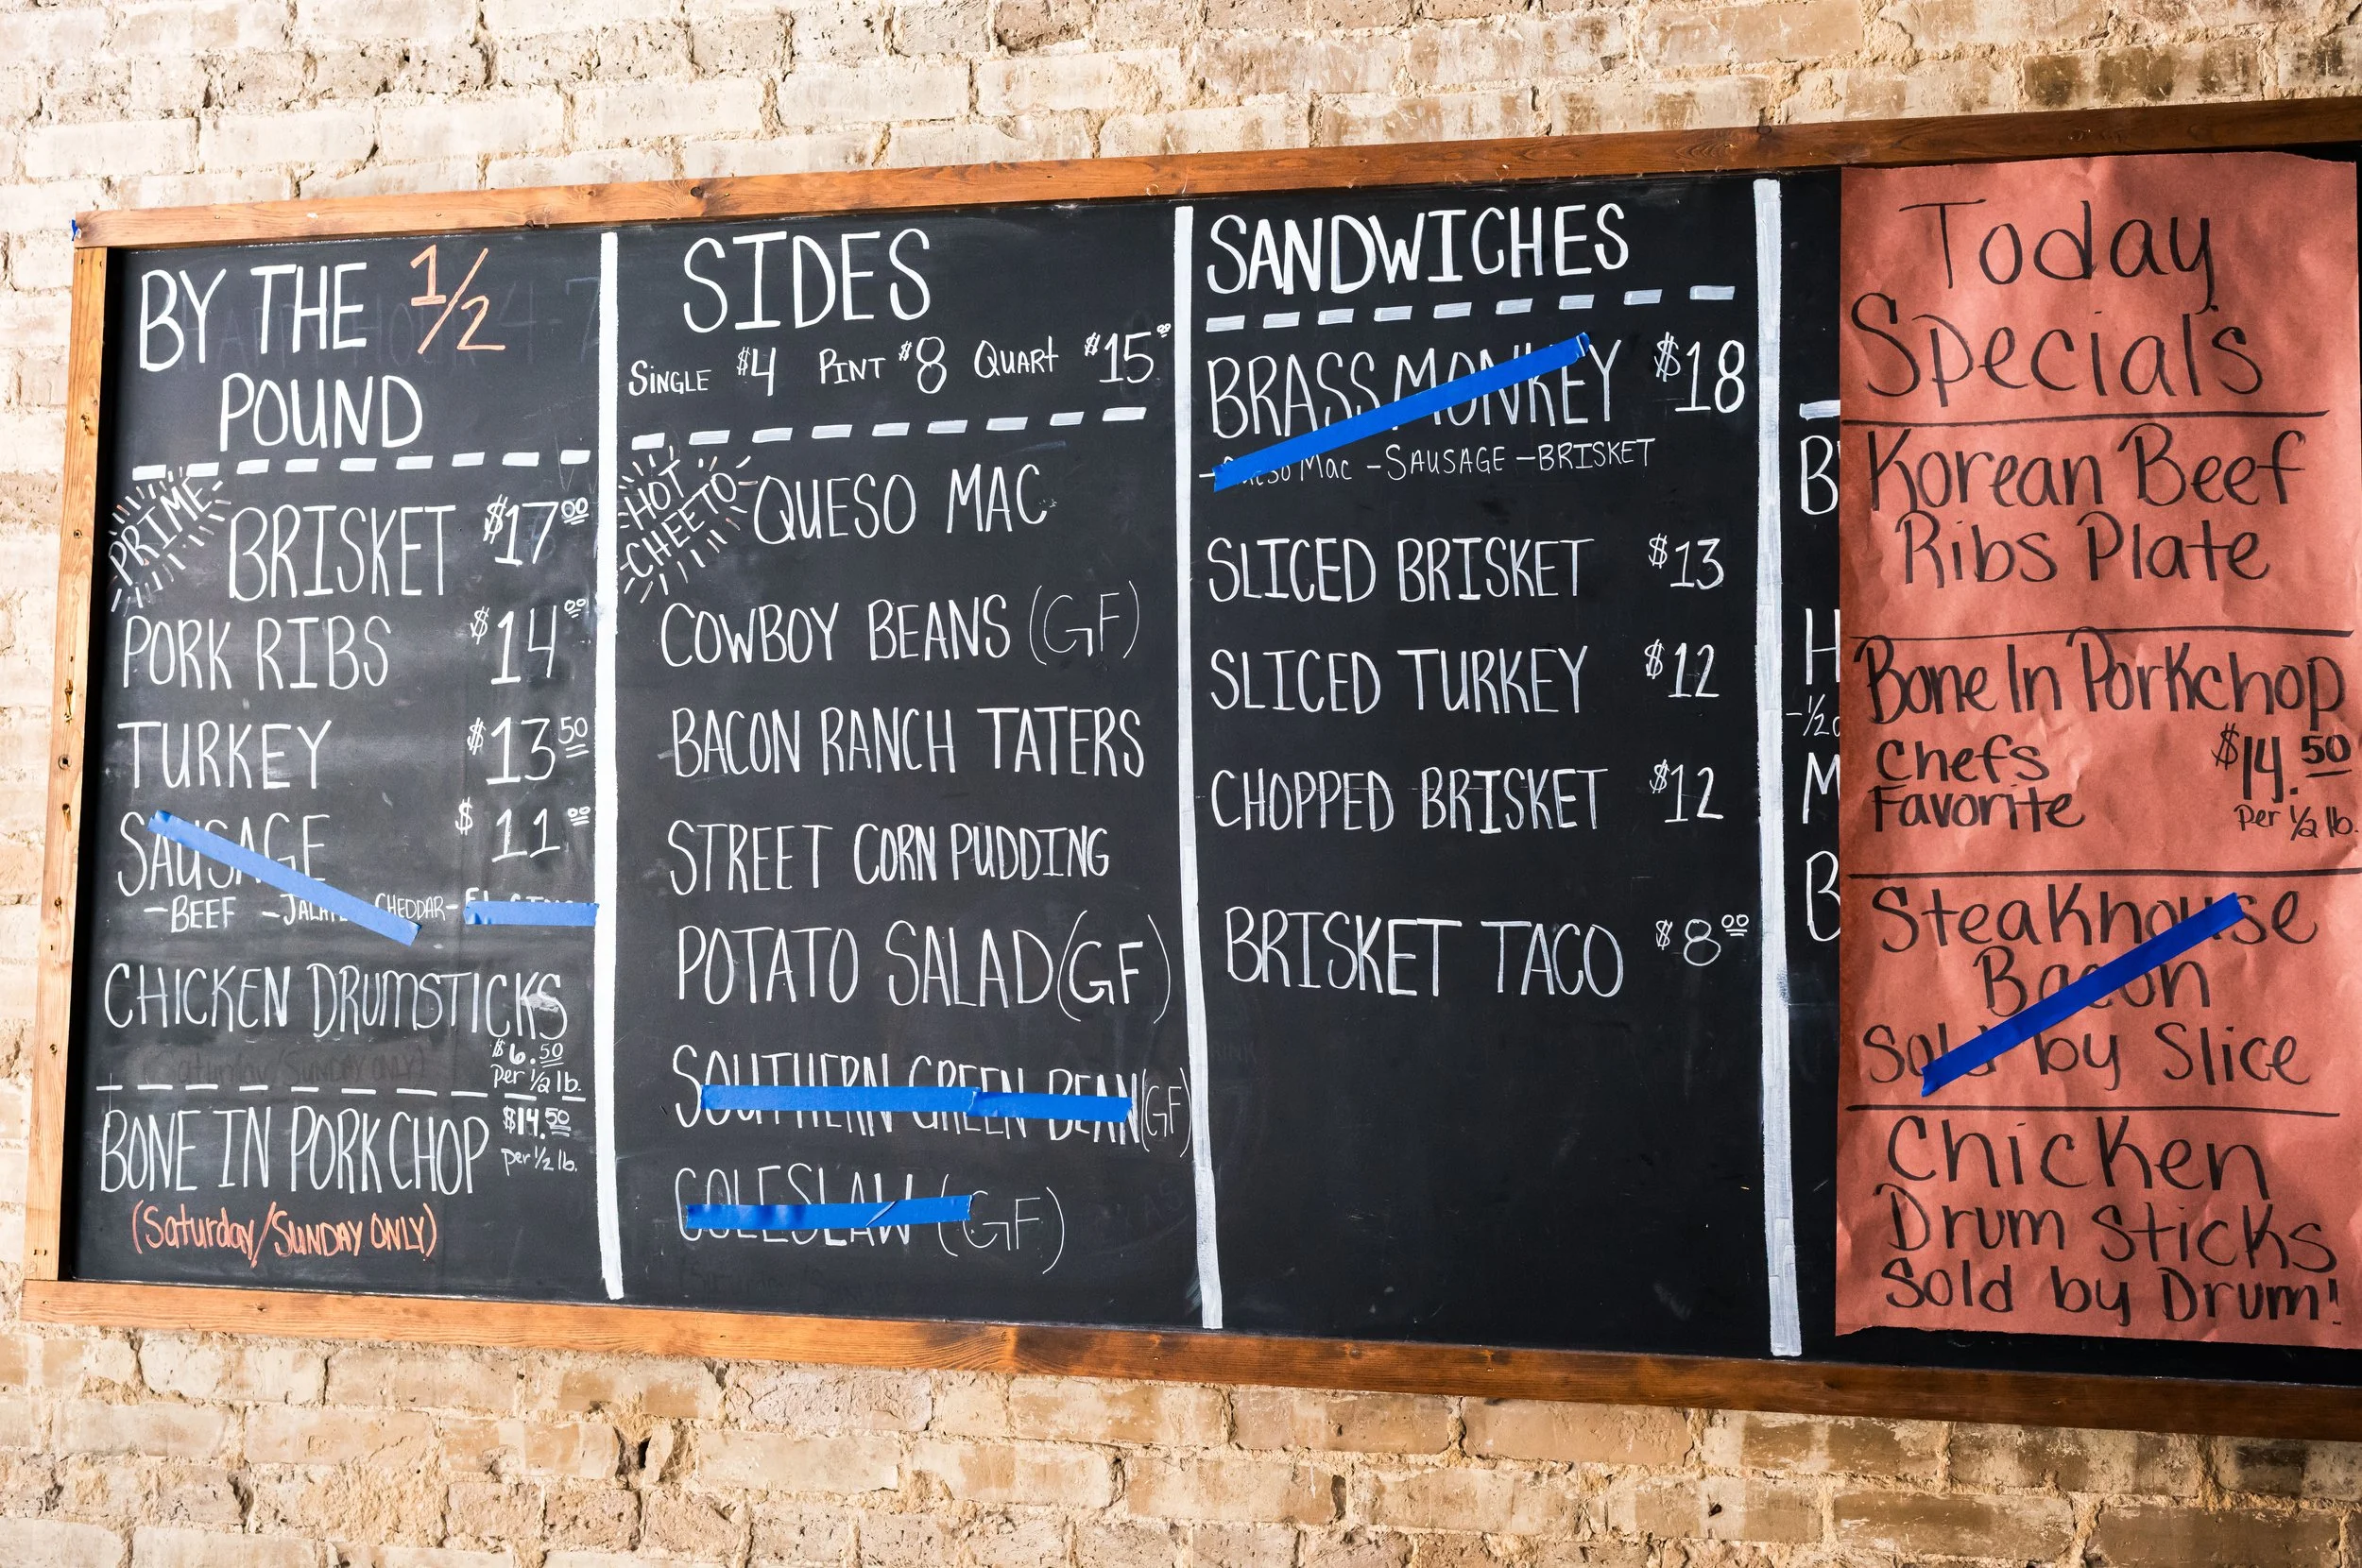 BY THE 1/2
POUND
PRIME
BRISKET $17.00
PORK RIBS $14.00
TURKEY $13.50
SAUSAGE $11.00
-BEEF -JALAPEÑO CHEDDAR-
CHICKEN DRUMSTICKS
$6.50
Per 1/2 lb.
(Saturday/SUNDAY ONLY)
BONE IN PORKCHOP $14.50
per 1/2 lb.
(Saturday/SUNDAY ONLY)
SIDES
SINGLE $4 PINT $8 QUART $15.00
HOT
CHEETO
QUESO MAC
COWBOY BEANS (GF)
BACON RANCH TATERS
STREET CORN PUDDING
POTATO SALAD (GF)
SOUTHERN GREEN BEAN (GF)
COLESLAW (GF)
SANDWICHES
BRASS MONKEY $18
-Queso Mac -SAUSAGE -BRISKET
SLICED BRISKET $13
SLICED TURKEY $12
CHOPPED BRISKET $12
BRISKET TACO $8.00
B
H
-1/2
M
B
Today
Specials
Korean Beef
Ribs Plate
Bone In Porkchop
Chefs
Favorite
$14.50
per 1/2 lb.
Steakhouse
Bacon
Sold by Slice
Chicken
Drum Sticks
Sold by Drum!